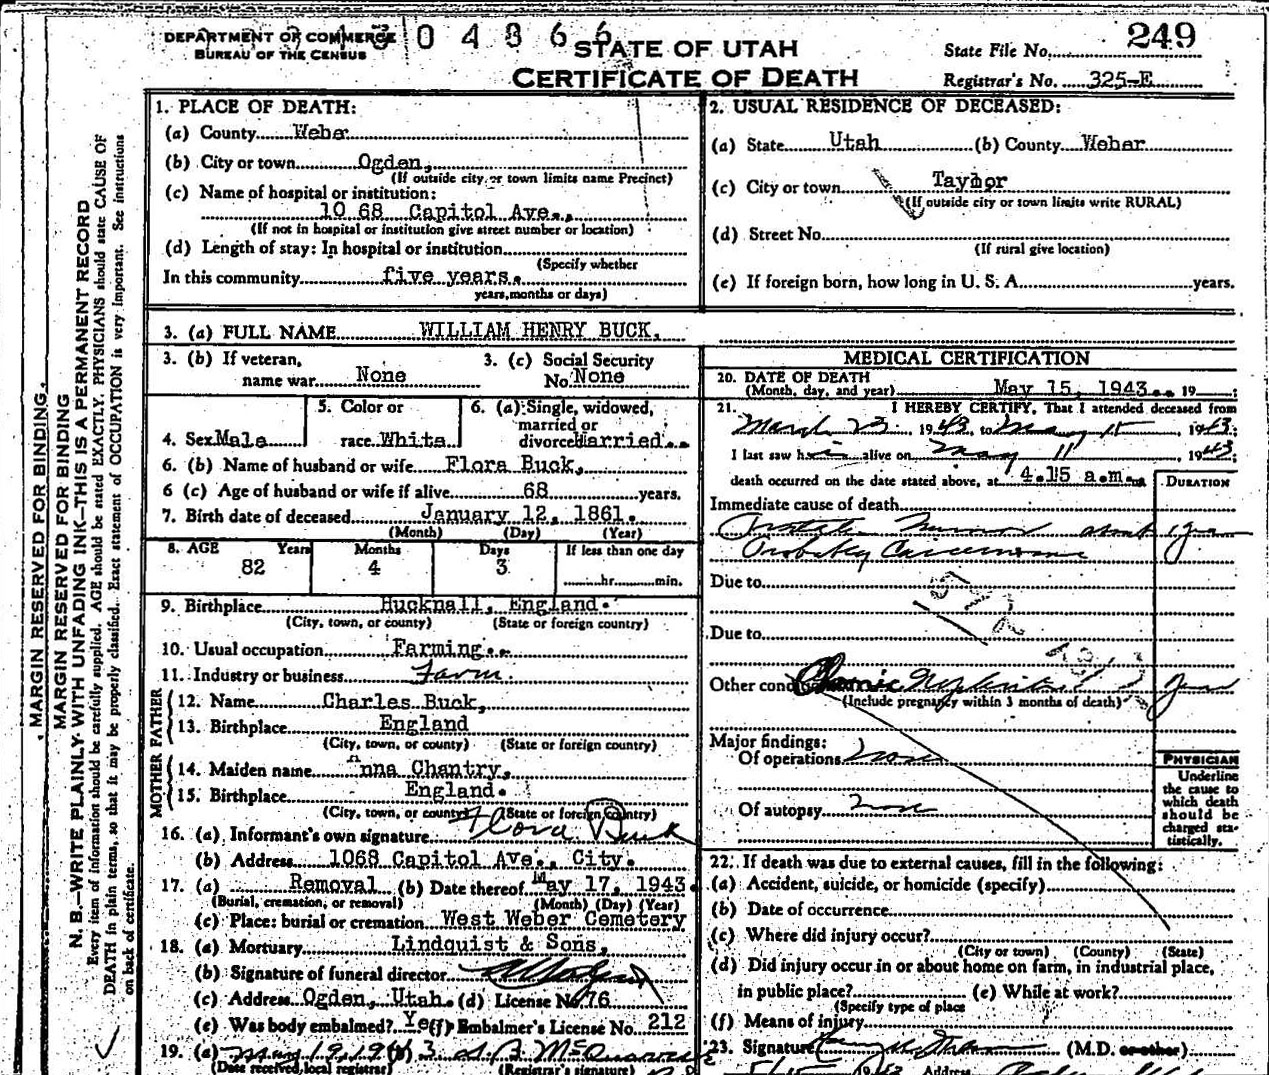 DEPARTMENT OF COMMERCE
BUREAU OF THE CENSUS
04866
STATE OF UTAH
CERTIFICATE OF DEATH
State File No. 249
Registrar's No. 325-E
MARGIN RESERVED FOR BINDING.
MARGIN RESERVED FOR BINDING
N. B.—WRITE PLAINLY WITH UNFADING INK—THIS IS A PERMANENT RECORD
Every item of information should be carefully supplied. AGE should be stated EXACTLY. PHYSICIANS should state CAUSE OF
DEATH in plain terms, so that it may be properly classified. Exact statement of OCCUPATION is very important. See instructions
on back of certificate.
1. PLACE OF DEATH:
(a) County Weber
(b) City or town Ogden,
(If outside city or town limits name Precinct)
(c) Name of hospital or institution:
1068 Capitol Ave.,
(If not in hospital or institution give street number or location)
(d) Length of stay: In hospital or institution
(Specify whether
In this community five years.
years, months or days)
2. USUAL RESIDENCE OF DECEASED:
(a) State Utah (b) County Weber
(c) City or town Taylor
(If outside city or town limits write RURAL)
(d) Street No.
(If rural give location)
(e) If foreign born, how long in U. S. A. years.
3. (a) FULL NAME WILLIAM HENRY BUCK,
3. (b) If veteran, name war None
3. (c) Social Security No. None
4. Sex Male
5. Color or race White
6. (a) Single, widowed, married or divorced Married.
6. (b) Name of husband or wife Flora Buck,
6 (c) Age of husband or wife if alive 68 years.
7. Birth date of deceased January 12, 1861.
(Month) (Day) (Year)
8. AGE Years Months Days If less than one day
82 4 3 hr. min.
9. Birthplace Hucknall, England.
(City, town, or county) (State or foreign country)
10. Usual occupation Farming.
11. Industry or business Farm.
FATHER
12. Name Charles Buck,
13. Birthplace England
(City, town, or county) (State or foreign country)
MOTHER
14. Maiden name Anna Chantry,
15. Birthplace England.
(City, town, or county) (State or foreign country)
16. (a) Informant's own signature Flora Buck
(b) Address 1068 Capitol Ave., City.
17. (a) Removal (b) Date thereof May 17, 1943.
(Burial, cremation, or removal) (Month) (Day) (Year)
(c) Place: burial or cremation West Weber Cemetery
18. (a) Mortuary Lindquist & Sons,
(b) Signature of funeral director
(c) Address Ogden, Utah. (d) License No. 76
(e) Was body embalmed? Yes (f) Embalmer's License No. 212
19. (a) May 19, 1943 (b)
(Date received local registrar) (Registrar's signature)
MEDICAL CERTIFICATION
20. DATE OF DEATH
(Month, day, and year) May 15, 1943. 19 ;
21. I HEREBY CERTIFY, That I attended deceased from
March 23, 1943, to May 15, 1943;
I last saw him alive on May 11, 1943
death occurred on the date stated above, at 4.15 a.m.
DURATION
Immediate cause of death
Prostate Tumor about 1 year
Probably Carcinoma
Due to
Due to
Other conditions Chronic Nephritis
(Include pregnancy within 3 months of death)
Major findings:
Of operations none
Of autopsy none
PHYSICIAN
Underline
the cause to
which death
should be
charged sta-
tistically.
22. If death was due to external causes, fill in the following:
(a) Accident, suicide, or homicide (specify)
(b) Date of occurrence
(c) Where did injury occur?
(City or town) (County) (State)
(d) Did injury occur in or about home on farm, in industrial place,
in public place? (e) While at work?
(Specify type of place
(f) Means of injury
23. Signature (M.D. or other)
5/15 1943 Address